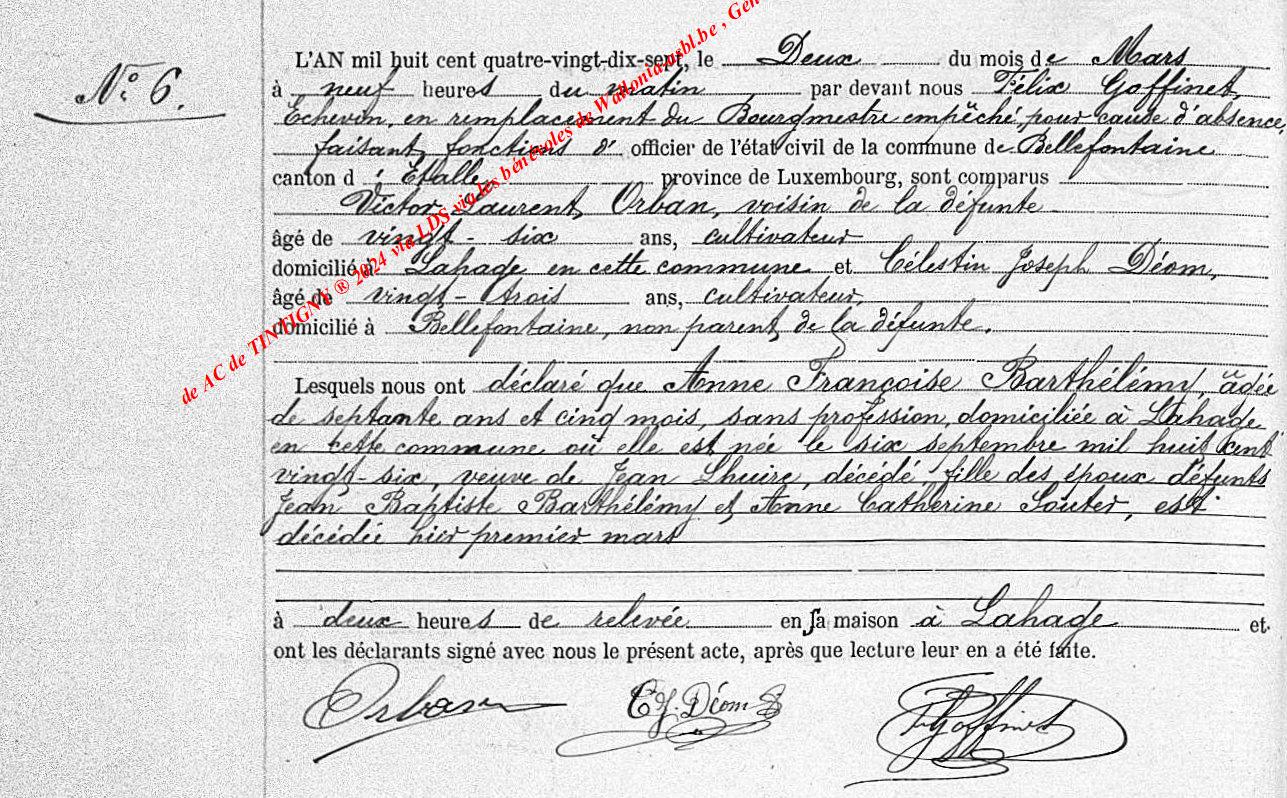 N° 6.
L'AN mil huit cent quatre-vingt-dix-sept, le Deux du mois de Mars
à neuf heures du matin par devant nous Félix Goffinet,
Echevin, en remplacement du Bourgmestre empêché, pour cause d'absence,
faisant fonctions d' officier de l'état civil de la commune de Bellefontaine
canton d'Etalle province de Luxembourg, sont comparus
Victor Laurent Orban, voisin de la défunte
âgé de vingt-six ans, cultivateur
domicilié à Lahage en cette commune et Célestin Joseph Déom,
âgé de vingt-trois ans, cultivateur,
domicilié à Bellefontaine, non parent de la défunte.
Lesquels nous ont déclaré que Anne Françoise Barthélémy, âgée
de septante ans et cinq mois, sans profession, domiciliée à Lahage
en cette commune où elle est née le six septembre mil huit cent
vingt-six, veuve de Jean Lhuire, décédé, fille des époux défunts
Jean Baptiste Barthélémy et Anne Catherine Souter, est
décédée hier premier mars
à deux heures de relevée en sa maison à Lahage et
ont les déclarants signé avec nous le présent acte, après que lecture leur en a été faite.
Orban CJ. Déom F Goffinet
de AC de TINTIGNY ® 2024 via LDS via les bénévoles de Wallonia asbl.be , Gen